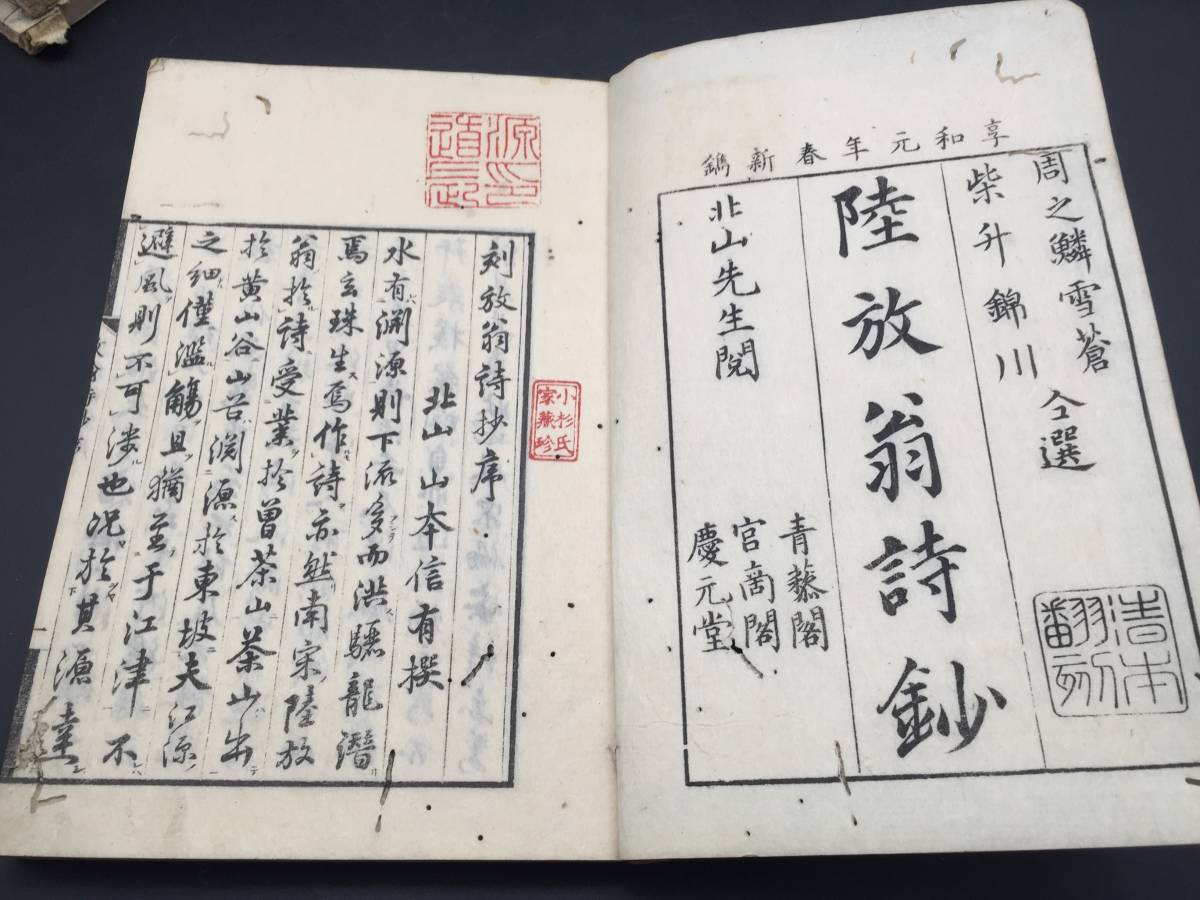 享和元年春新鐫
周之鱗雪蒼
柴升錦川
仝選
陸放翁詩鈔
北山先生閲
青藜閣
宮商閣
慶元堂
清本
翻刻
刻放翁詩抄序
北山山本信有撰
水有淵源則下流多而洪驪龍潛
焉玄珠生焉作詩亦然南宋陸放
翁於詩受業於曾茶山茶山出
於黄山谷山谷淵源於東坡夫江源
之細僅濫觴且猶至于江津不
避風則不可渉也况於其源達
小杉氏
家蔵珍